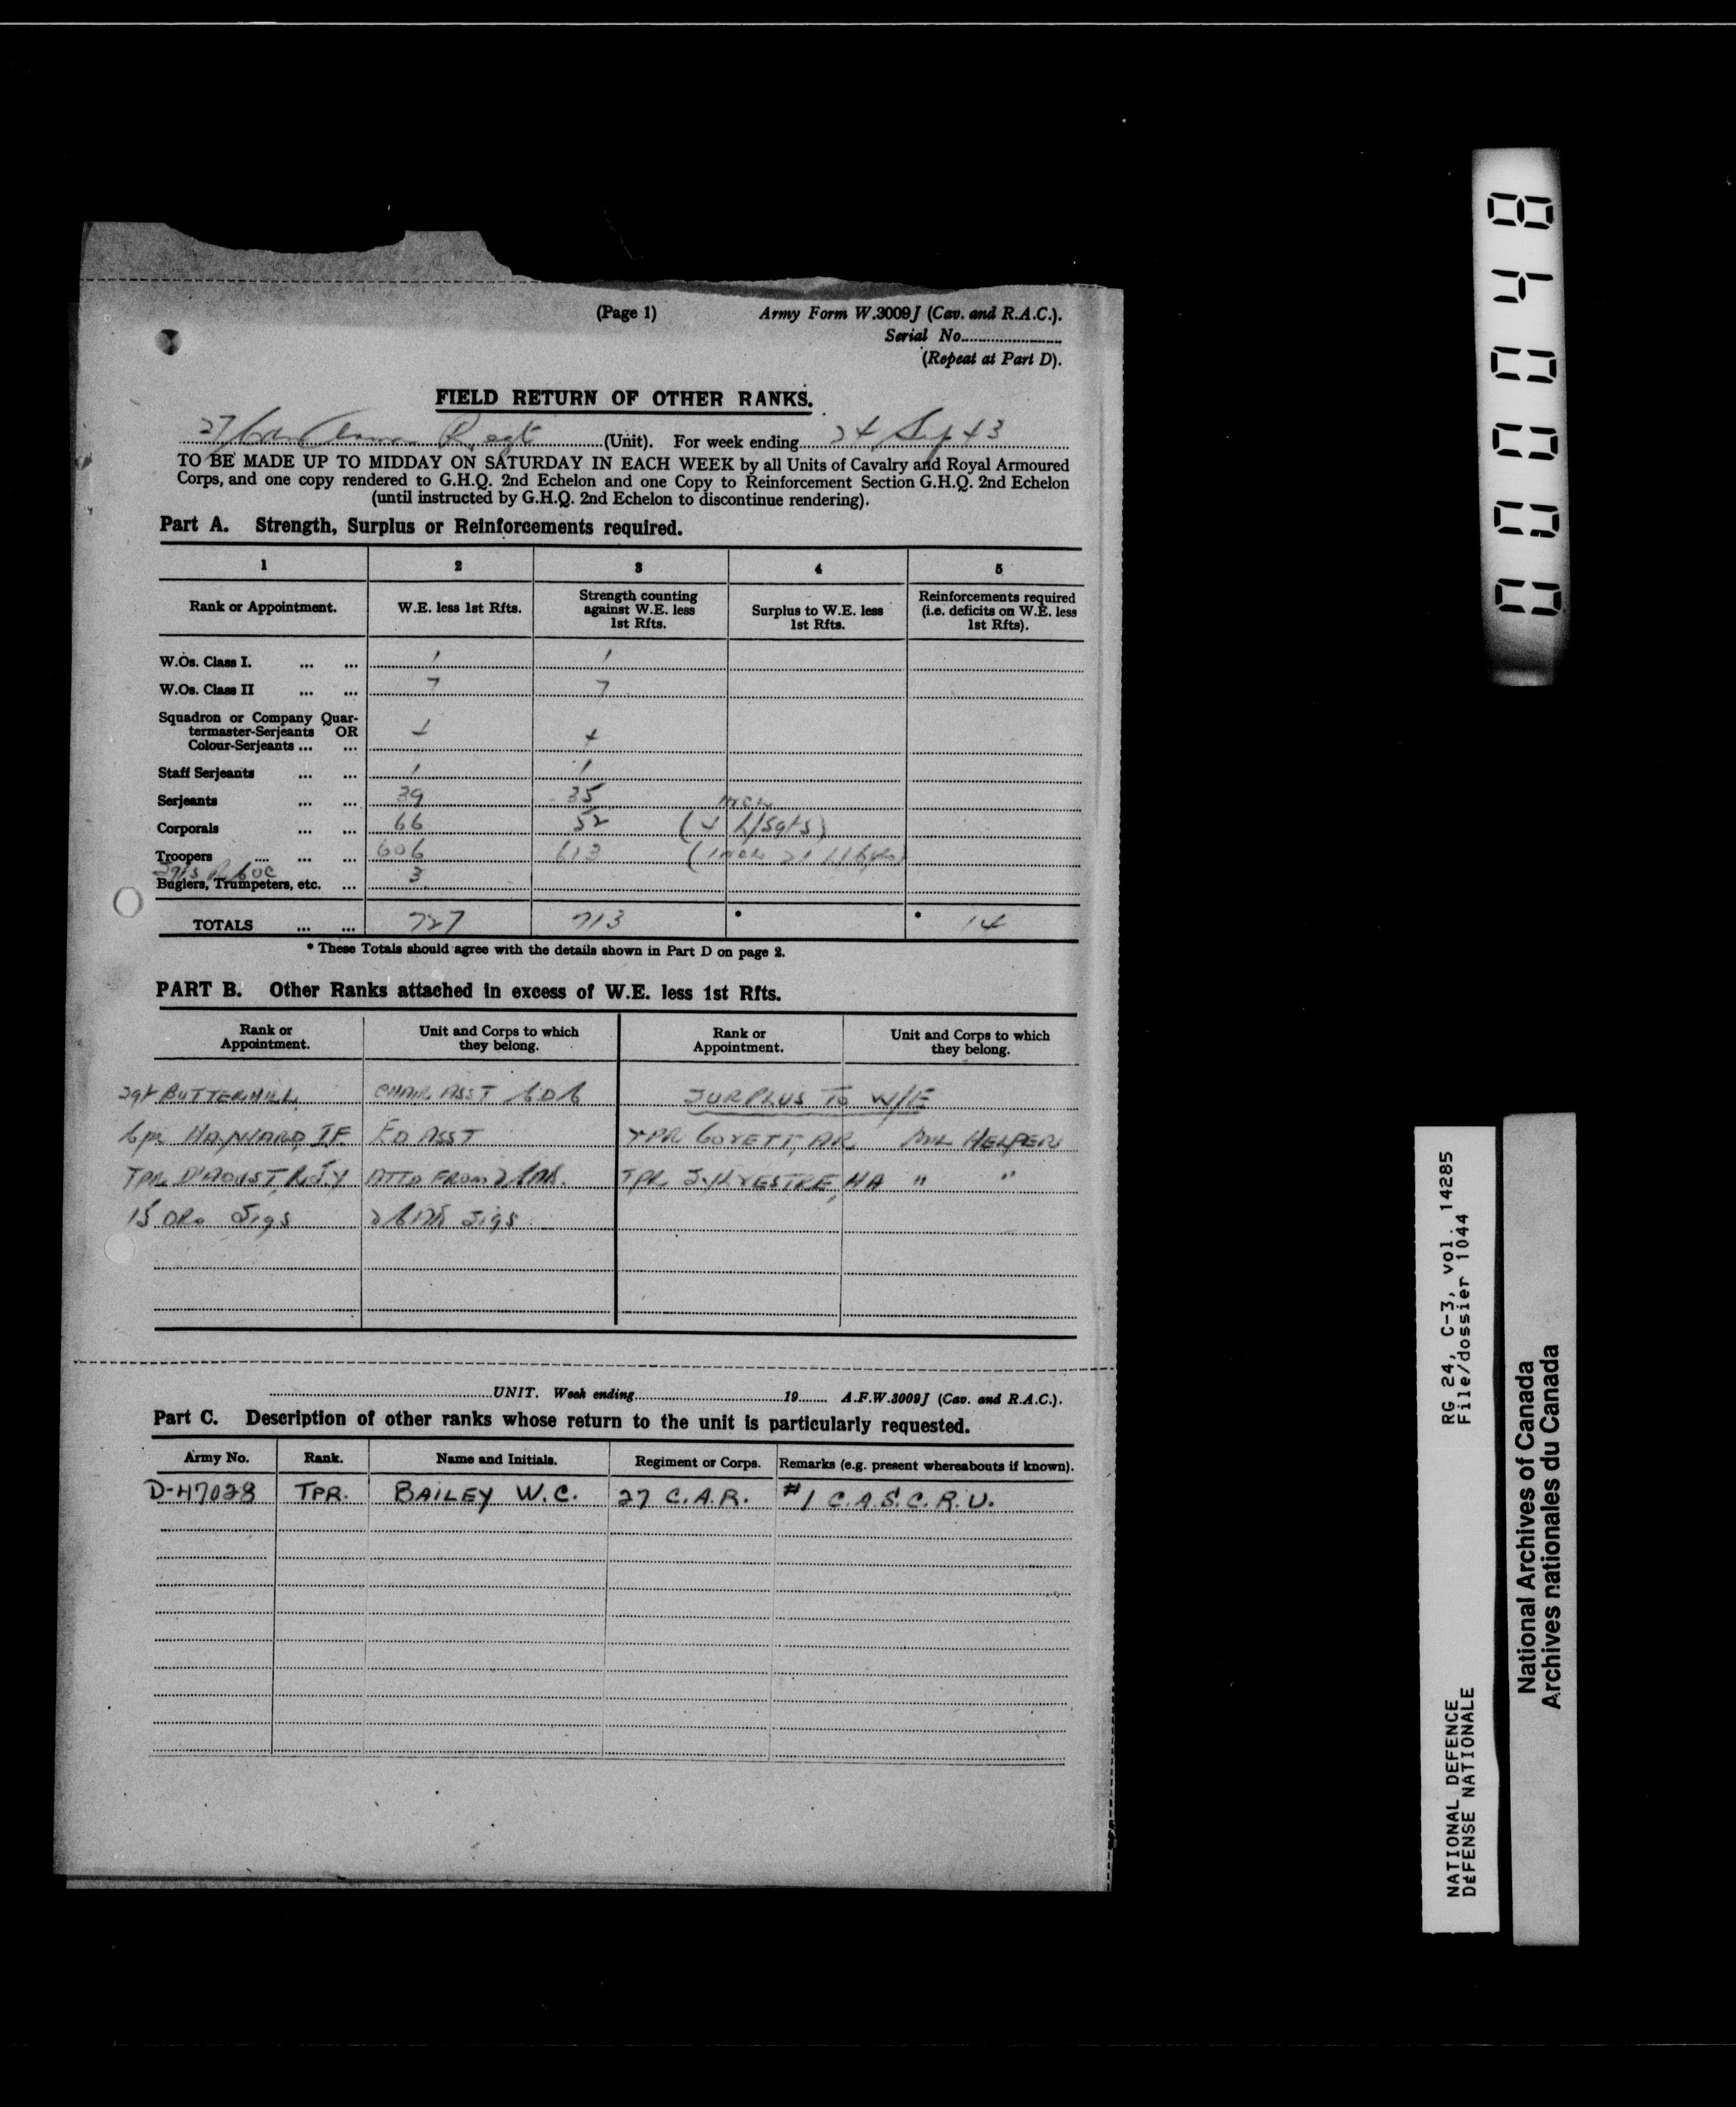 (Page 1) Army Form W.3009J (Cav. and R.A.C.).
Serial No.
(Repeat at Part D).
FIELD RETURN OF OTHER RANKS.
27 Can Regt (Unit). For week ending 24 Sep 43
TO BE MADE UP TO MIDDAY ON SATURDAY IN EACH WEEK by all Units of Cavalry and Royal Armoured
Corps, and one copy rendered to G.H.Q. 2nd Echelon and one Copy to Reinforcement Section G.H.Q. 2nd Echelon
(until instructed by G.H.Q. 2nd Echelon to discontinue rendering).
Part A. Strength, Surplus or Reinforcements required.
1 2 3 4 5
Rank or Appointment. W.E. less 1st Rfts. Strength counting against W.E. less 1st Rfts. Surplus to W.E. less 1st Rfts. Reinforcements required (i.e. deficits on W.E. less 1st Rfts).
W.Os. Class I. ... ... 1 1
W.Os. Class II ... ... 7 7
Squadron or Company Quar-
termaster-Serjeants OR 4 4
Colour-Serjeants ... ...
Staff Serjeants ... ... 1 1
Serjeants ... ... 39 35
Corporals ... ... 66 52 (4 L/Sgts)
Troopers .... ... ... 606 613
Buglers, Trumpeters, etc. ... 3
TOTALS ... ... 727 713 * * 14
* These Totals should agree with the details shown in Part D on page 2.
PART B. Other Ranks attached in excess of W.E. less 1st Rfts.
Rank or Appointment. Unit and Corps to which they belong. Rank or Appointment. Unit and Corps to which they belong.
Sgt BUTTERHILL ASST SURPLUS TO W/E
Cpl HAYWARD, IF ED ASST TPR GOYETT, AR HELPER
TPR D'AOUST, ATTD FROM TPR SYLVESTRE, HA " "
15 ORs Sigs Sigs
UNIT. Week ending 19 A.F.W.3009J (Cav. and R.A.C.).
Part C. Description of other ranks whose return to the unit is particularly requested.
Army No. Rank. Name and Initials. Regiment or Corps. Remarks (e.g. present whereabouts if known).
D-47028 TPR. BAILEY W.C. 27 C.A.R. #1 C.A.S.C.R.U.
000048
RG 24, C-3, vol. 14285
File/dossier 1044
NATIONAL DEFENCE
DÉFENSE NATIONALE
National Archives of Canada
Archives nationales du Canada